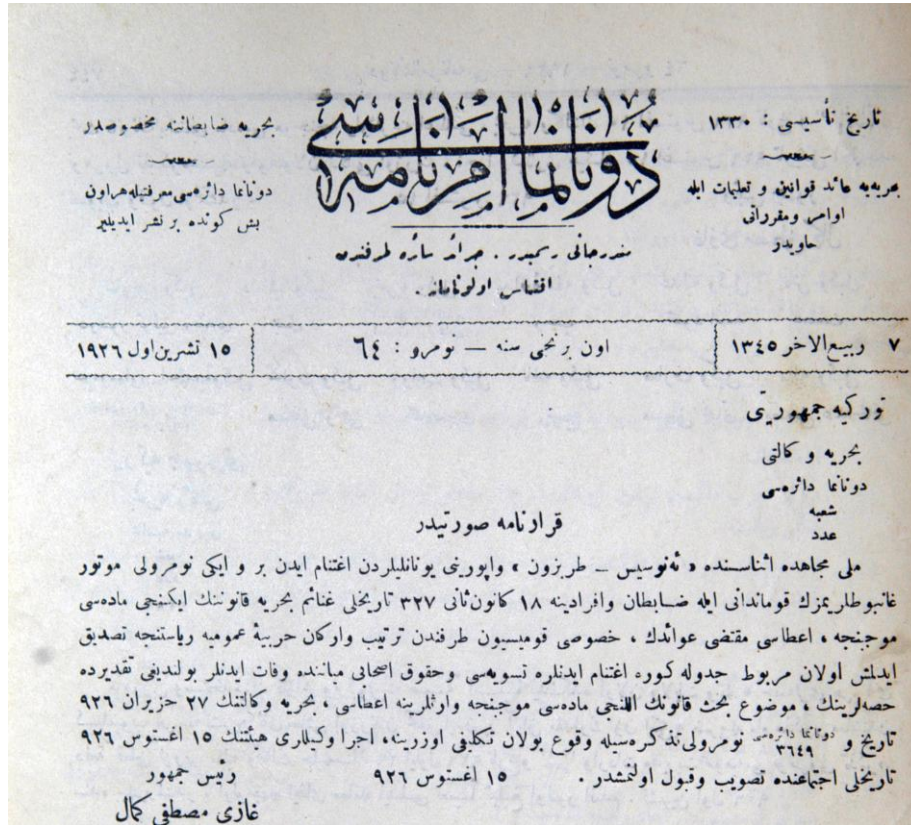 تاریخ تأسیسی : ١٣٣٠
بحریه‌یه عائد قوانین و تعلیمات ایله
اوامر ومقرراتی
حاویدر
دونانما امرنامه‌سی
مندرجاتی رسمیدر . جرائد سائره طرفندن
اقتباس اولونه‌ماز .
بحریه ضابطاننه مخصوصدر
دونانما دائره‌سی معرفتیله هر اون
بش کونده بر نشر ایدیلیر
٧ ربیع‌الاخر ١٣٤٥
اون برنجی سنه — نومرو : ٦٤
١٥ تشرین‌اول ١٩٢٦
تورکیه جمهوریتی
بحریه وکالتی
دونانما دائره‌سی
شعبه
عدد
قرارنامه صورتیدر
ملی مجاهده اثناسنده « ئه‌نوسیس – طربزون » واپورینی یونانلیلردن اغتنام ایدن بر و ایکی نومرولی موتور
غانبوطلریمزك قوماندانی ایله ضابطان وافرادینه ١٨ کانون‌ثانی ٣٢٧ تاریخلی غنائم بحریه قانوننك ایکنجی ماده‌سی
موجبنجه ، اعطاسی مقتضی عوائدك ، خصوصی قومیسیون طرفندن ترتیب وارکان حربیهٔ عمومیه ریاستنجه تصدیق
ایدلش اولان مربوط جدوله کوره اغتنام ایدنلره تسویه‌سی وحقوق اصحابی میاننده وفات ایدنلر بولندیغی تقدیرده
حصه‌لرینك ، موضوع بحث قانونك اللنجی ماده‌سی موجبنجه وارثلرینه اعطاسی ، بحریه وکالتنك ٢٧ حزیران ٩٢٦
تاریخ و دونانما دائره‌سی ٣٦٤٩ نومرولی تذکره‌سیله وقوع بولان تکلیفی اوزرینه، اجرا وکیللری هیئتنك ١٥ اغستوس ٩٢٦
تاریخلی اجتماعنده تصویب وقبول اولنمشدر . ١٥ اغستوس ٩٢٦
رئیس جمهور
غازی مصطفی کمال